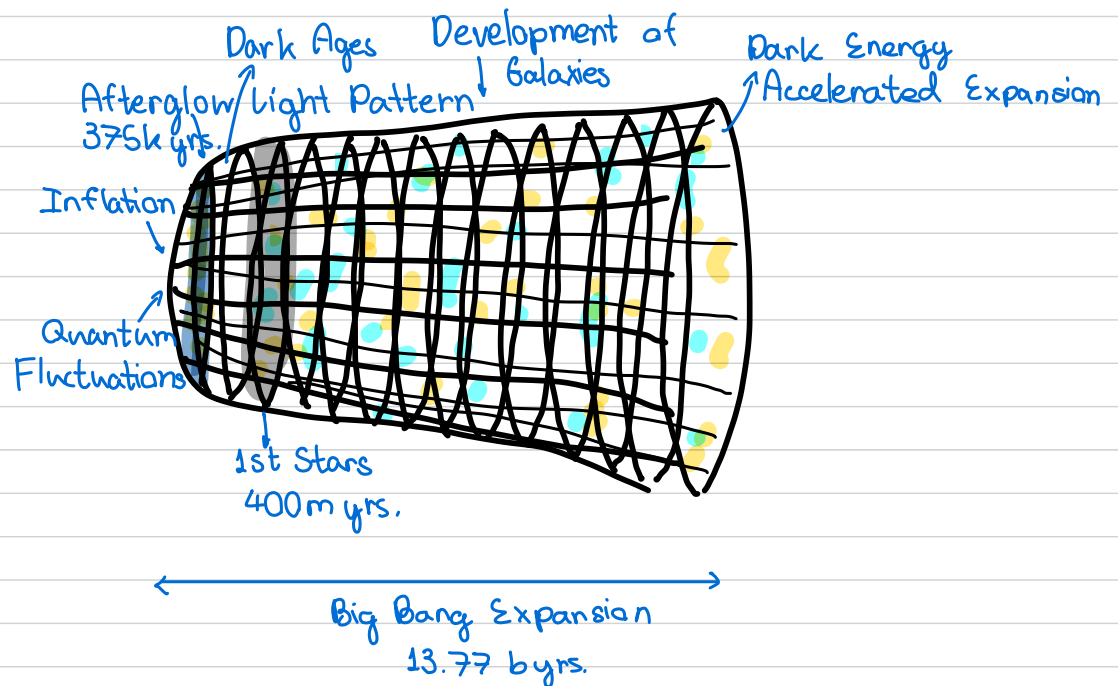 Dark Ages
Development of
Galaxies
Dark Energy
Accelerated Expansion
Afterglow Light Pattern
375k yrs.
Inflation
Quantum
Fluctuations
1st Stars
400m yrs.
Big Bang Expansion
13.77 b yrs.